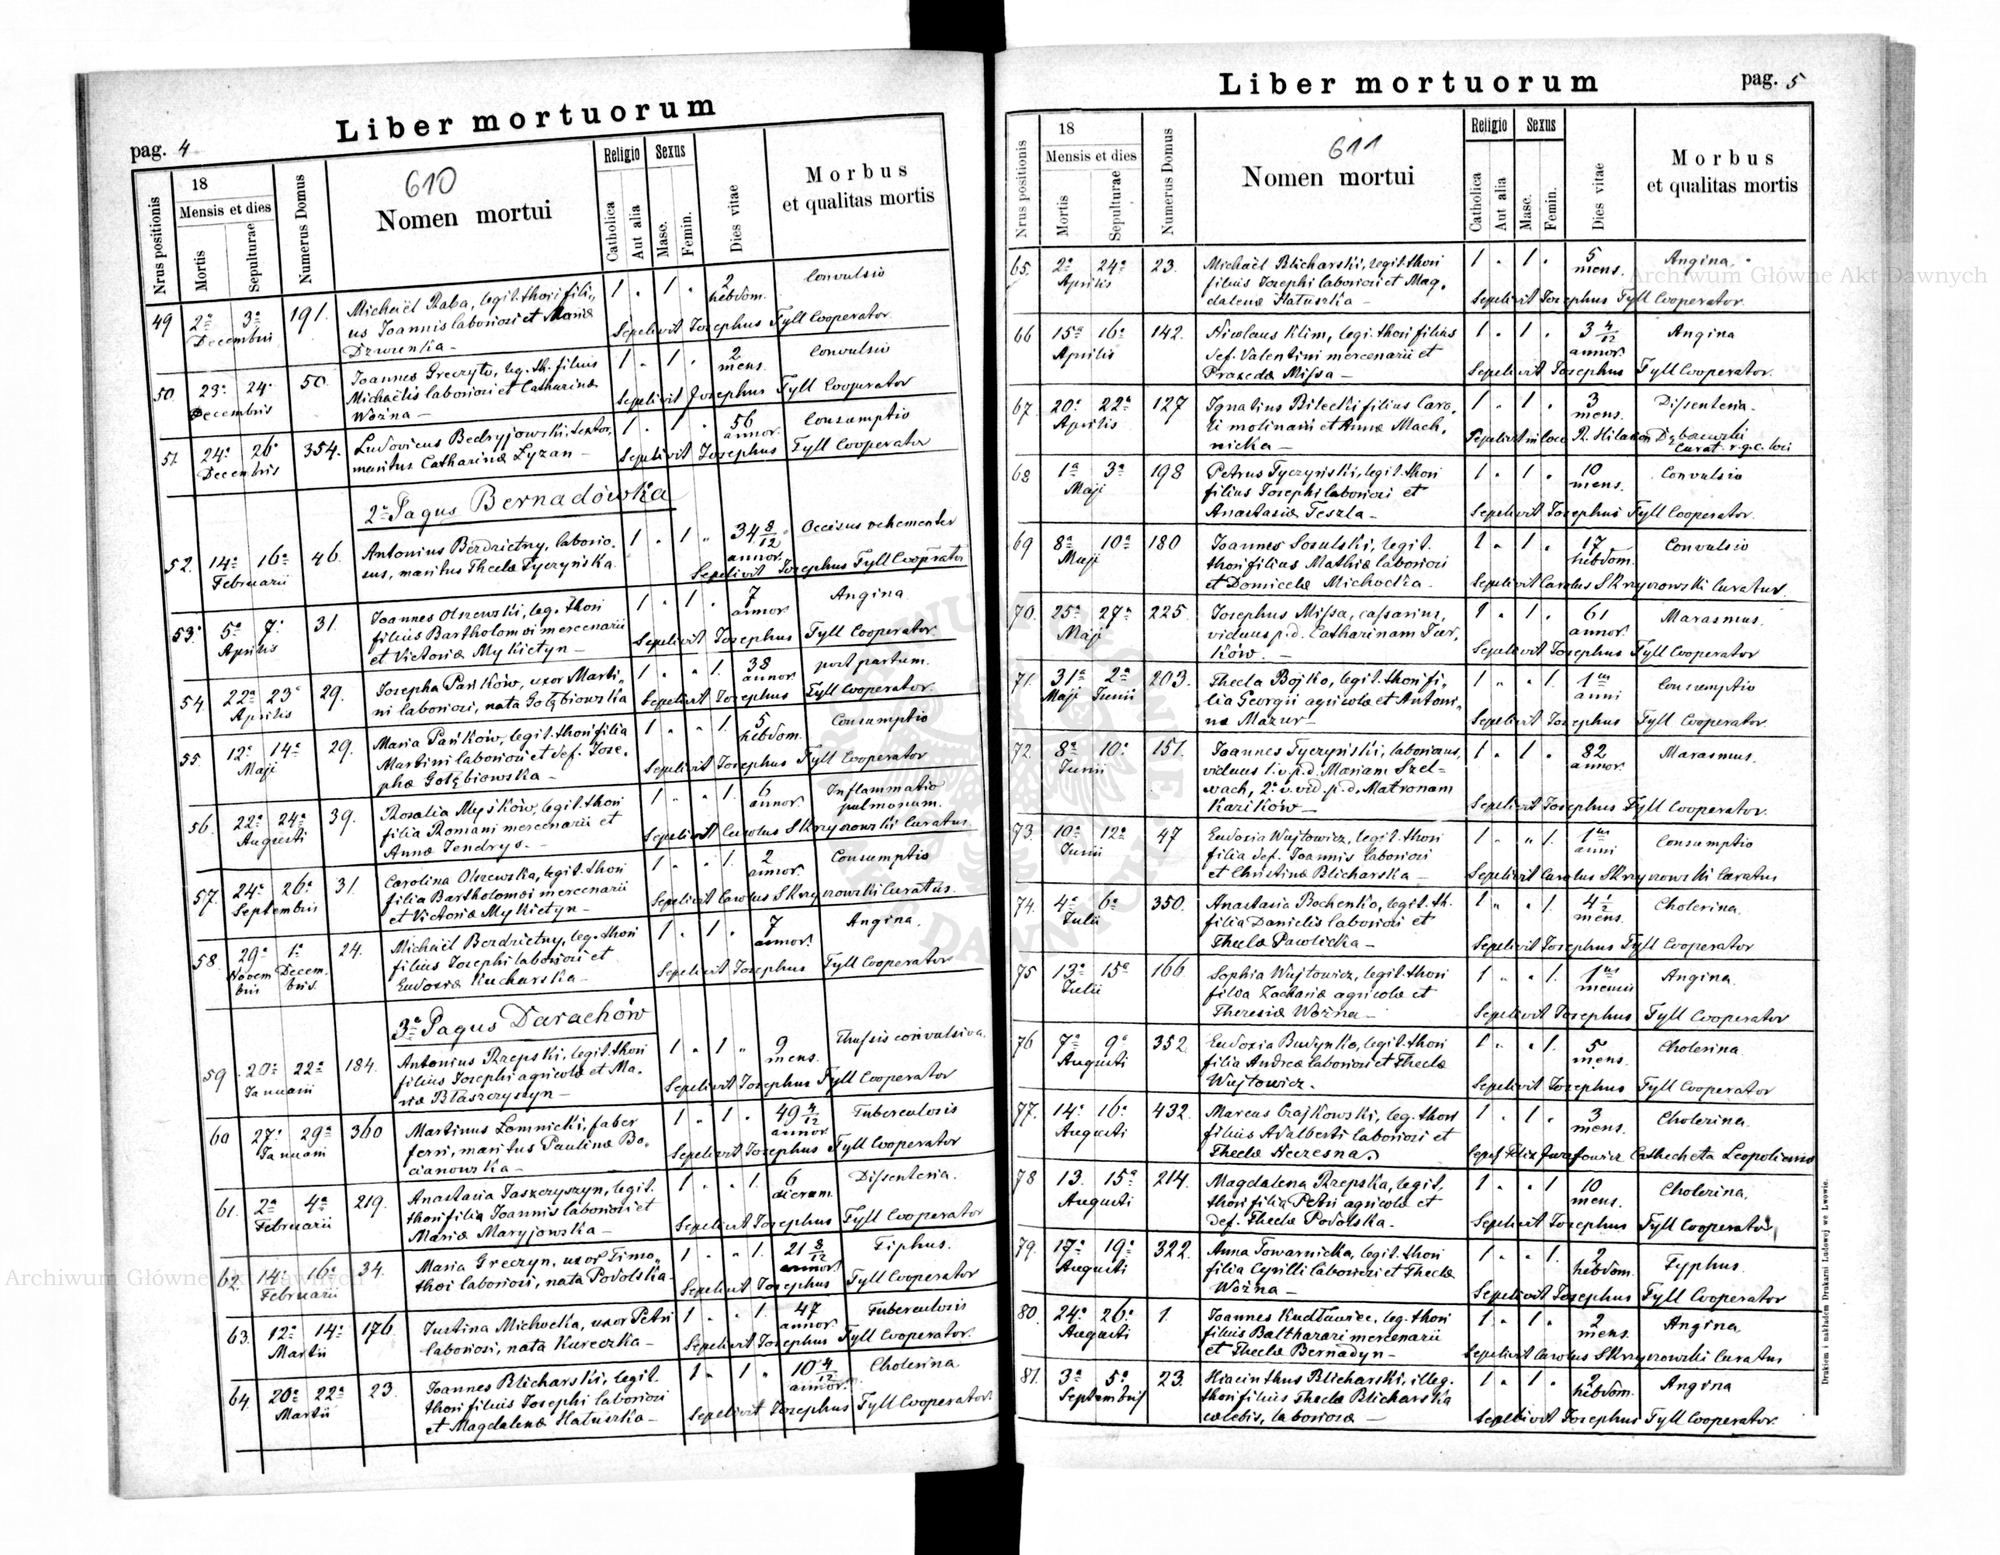 Liber mortuorum
pag. 4
Nrus positionis
18
Mensis et dies
Mortis
Sepulturae
Numerus Domus
610
Nomen mortui
Religio
Catholica
Aut alia
Sexus
Masc.
Femin.
Dies vitae
Morbus
et qualitas mortis
49 2a 3a 191. Michaël Raba, legit. thori fili- 1 „ 1 „ 2 Convulsio
Decembris us Joannis laboriosi et Mariæ hebdom.
Dzwenka — Sepelivit Josephus Tyll Cooperator
50 23a 24a 50. Joannes Greczyło, leg. th. filius 1 „ 1 „ 2 Convulsio
Decembris Michaëlis laboriosi et Catharinæ mens.
Woźna — Sepelivit Josephus Tyll Cooperator
51 24a 26a 354. Ludovicus Bedryjowski, textor, 1 „ 1 „ 56 Consumptio
Decembris maritus Catharinæ Łyzan — annor.
Sepelivit Josephus Tyll Cooperator
2us Pagus Bernadówka
52. 14a 16a 46. Antonius Bezdzietny, laborio- 1 „ 1 „ 34 8/12 Occisus vehementer
Februarii sus, maritus Theclæ Tyczyńska. annor.
Sepelivit Josephus Tyll Cooprator
53. 5a 7a 31. Joannes Olszewski, leg. thori 1 „ 1 „ 7 Angina
Aprilis filius Bartholomæi mercenarii annor.
et Victoriæ Mykietyn — Sepelivit Josephus Tyll Cooperator
54 22a 23a 29. Josepha Pańków, uxor Marti- 1 „ „ 1. 38 post partum.
Aprilis ni laboriosi, nata Gołębiowska annor.
Sepelivit Josephus Tyll Cooperator
55. 12a 14a 29. Maria Pańków, legit. thori filia 1 „ „ 1. 5 Consumptio
Maji Martini laboriosi et def. Jose- hebdom.
phæ Gołębiowska — Sepelivit Josephus Tyll Cooperator
56. 22a 24a 39. Rosalia Myśków, legit. thori 1 „ „ 1. 6 Inflammatio
Augusti filia Romani mercenarii et annor. pulmonum.
Annæ Jendrys. — Sepelivit Carolus Skrzyszowski Curatus
57. 24a 26a 31. Carolina Olszewska, legit. thori 1 „ „ 1. 2 Consumptio
Septembris filia Bartholomæi mercenarii annor.
et Victoriæ Mykietyn — Sepelivit Carolus Skrzyszowski Curatus.
58. 29a 1a 24. Michaël Bezdzietny, leg. thori 1 „ 1 „ 7 Angina.
Novem Decem- filius Josephi laboriosi et annor.
bris bris. Eudoxiæ Kucharska — Sepelivit Josephus Tyll Cooperator
3us Pagus Darachów
59 20a 22a 184. Antonius Rzepski, legit. thori 1 „ 1 „ 9 Thussis convulsiva.
Januarii filius Josephi agricolæ et Ma- mens.
riæ Błaszczyszyn — Sepelivit Josephus Tyll Cooperator
60 27a 29a 360 Martinus Łomnicki, faber 1 „ 1 „ 49 4/12 Tuberculosis
Januarii ferri, maritus Paulinæ Bo- annor.
cianowska — Sepelivit Josephus Tyll Cooperator
61. 2a 4a 219. Anastasia Jaszczyszyn, legit. 1 „ „ 1. 6 Dissenteria.
Februarii thori filia Joannis laboriosi et dierum.
Mariæ Maryjowska — Sepelivit Josephus Tyll Cooperator
62. 14a 16a 34. Maria Greczyn, uxor Timo- 1 „ „ 1. 21 8/12 Tiphus.
Februarii thei laboriosi, nata Podolska. annor.
Sepelivit Josephus Tyll Cooperator
63. 12a 14a 176. Justina Michocka, uxor Petri 1 „ „ 1. 47 Tuberculosis
Martii laboriosi, nata Kureczka — annor.
Sepelivit Josephus Tyll Cooperator.
64. 20a 22a 23. Joannes Blicharski, legit. 1 „ 1 „ 10 4/12 Cholerina
Martii thori filius Josephi laboriosi annor.
et Magdalenæ Hatuszka — Sepelivit Josephus Tyll Cooperator.
Liber mortuorum
pag. 5
Nrus positionis
18
Mensis et dies
Mortis
Sepulturae
Numerus Domus
611
Nomen mortui
Religio
Catholica
Aut alia
Sexus
Masc.
Femin.
Dies vitae
Morbus
et qualitas mortis
65. 2a 24a 23. Michaël Blicharski, legit. thori 1 „ 1 „ 5 Angina.
Aprilis filius Josephi laboriosi et Mag- mens.
dalenæ Hatuszka — Sepelivit Josephus Tyll Cooperator.
66 15a 16a 142. Nicolaus Klim, legi. thori filius 1 „ 1 „ 3 4/12 Angina
Aprilis def. Valentini mercenarii et annor.
Praxedæ Missa — Sepelivit Josephus Tyll Cooperator.
67. 20a 22a 127 Ignatius Bilecki filius Caro- 1 „ 1 „ 3 Dissenteria.
Aprilis li molinarii et Annæ Mach- mens.
nicka — Sepelivit in loco R. Hilarion Dębczewski
Curat. r. g. c. loci
68 1a 3a 198 Petrus Tyczyński, legit. thori 1 „ 1 „ 10 Convulsio
Maji filius Josephi laboriosi et mens.
Anastasiæ Teszla — Sepelivit Josephus Tyll Cooperator.
69 8a 10a 180 Joannes Sosulski, legit. 1 „ 1 „ 17 Convulsio
Maji thori filius Mathiæ laboriosi hebdom.
et Domicelæ Michocka — Sepelivit Carolus Skrzyszowski Curatus.
70. 25a 27a 225 Josephus Missa, cassarius, 1 „ 1 „ 61 Marasmus.
Maji viduus p. d. Catharinam Jur- annor.
ków. — Sepelivit Josephus Tyll Cooperator
71. 31a 2a 203. Thecla Bojko, legit. thori fi- 1 „ „ 1. 1us Consumptio
Maji Junii lia Georgii agricolæ et Antoni- anni
næ Mazur — Sepelivit Josephus Tyll Cooperator.
72. 8a 10a 151. Joannes Tyczyński, laboriosus, 1 „ 1 „ 82 Marasmus.
Junii viduus 1. v. p. d. Mariam Szel- annor.
wach, 2o v. vid. p. d. Matronam
Kazików — Sepelivit Josephus Tyll Cooperator.
73. 10a 12a 47 Eudoxia Wujtowicz, legit. thori 1 „ „ 1. 1us Consumptio
Junii filia def. Joannis laboriosi anni
et Christinæ Blicharska — Sepelivit Carolus Skrzyszowski Curatus
74. 4a 6a 350. Anastasia Bochenko, legit. th. 1 „ „ 1. 4 1/2 Cholerina.
Julii filia Danielis laboriosi et mens.
Theclæ Pawlicka — Sepelivit Josephus Tyll Cooperator
75 13a 15a 166 Sophia Wujtowicz, legit. thori 1 „ „ 1. 1us Angina.
Julii filia Zachariæ agricolæ et mensis
Theresiæ Woźna — Sepelivit Josephus Tyll Cooperator
76 7a 9a 352 Eudoxia Budynko, legit. thori 1 „ „ 1. 5 Cholerina.
Augusti filia Andreæ laboriosi et Theclæ mens.
Wujtowicz. Sepelivit Josephus Tyll Cooperator
77. 14a 16a 432. Marcus Czajkowski, leg. thori 1 „ 1 „ 3 Cholerina.
Augusti filius Adalberti laboriosi et mens.
Theclæ Sepel Felix Józefowicz Cathecheta Leopoliensis
78 13. 15a 214. Magdalena Rzepska, legit. 1 „ „ 1 10 Cholerina.
Augusti thori filia Petri agricolæ et mens.
def. Theclæ Podolska — Sepelivit Josephus Tyll Cooperator
79. 17a 19a 322. Anna Towarnicka, legit. thori 1 „ „ 1. 2 Typhus.
Augusti filia Cyrilli laboriosi et Theclæ hebdom.
Woźna — Sepelivit Josephus Tyll Cooperator
80. 24a 26a 1. Joannes Kudławiec, leg. thori 1 „ 1 „ 2 Angina
Augusti filius Balthazari mercenarii mens.
et Theclæ Bernadyn — Sepelivit Carolus Skrzyszowski Curatus
81. 3a 5a 23. Hiacinthus Blicharski, illeg. 1 „ 1 „ 2 Angina
Septembris thori filius Theclæ Blicharska hebdom.
cælebis, laboriosæ — Sepelivit Josephus Tyll Cooperator.
Drukiem i nakładem Drukarni Ludowej we Lwowie.
Archiwum Główne Akt Dawnych
Archiwum Główne Akt Dawnych
ARCHIWUM GŁÓWNE AKT DAWNYCH